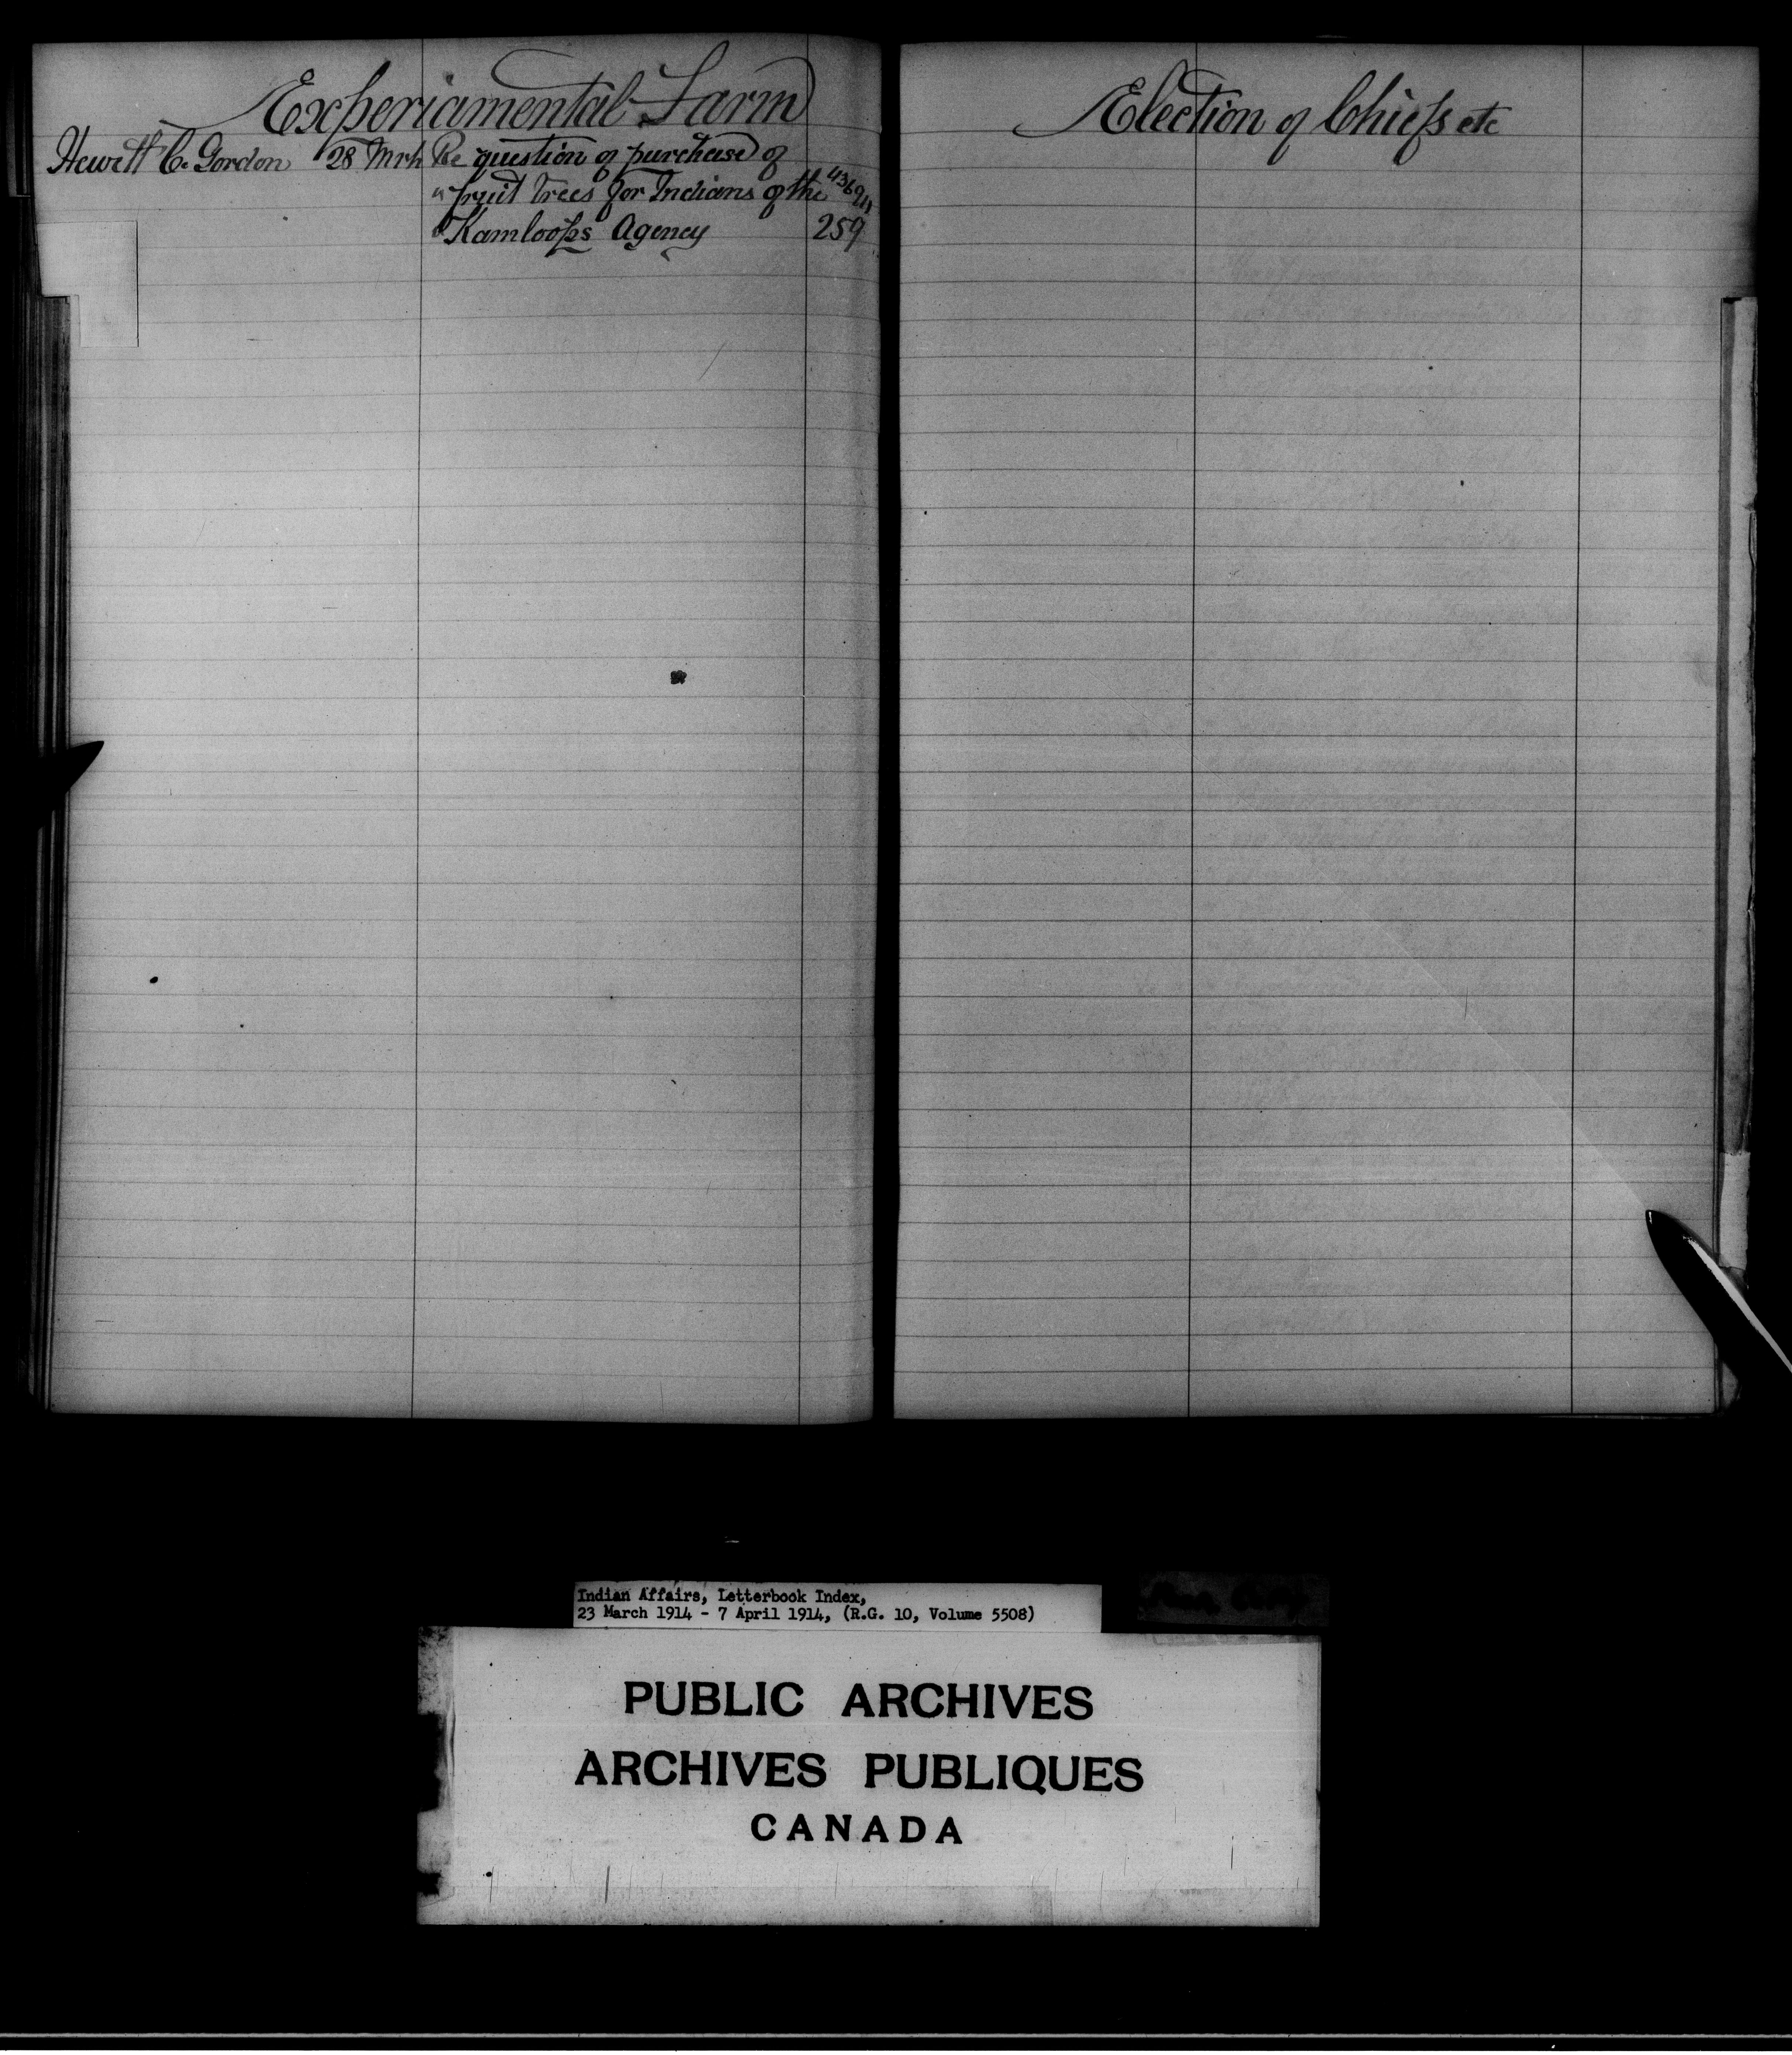 Experiamental Farm
Hewitt C. Gordon 28 Mrh Re question of purchase of
" fruit trees for Indians of the
Kamloops Agency 259
Election of Chiefs etc
Indian Affairs, Letterbook Index,
23 March 1914 - 7 April 1914, (R.G. 10, Volume 5508)
PUBLIC ARCHIVES
ARCHIVES PUBLIQUES
CANADA